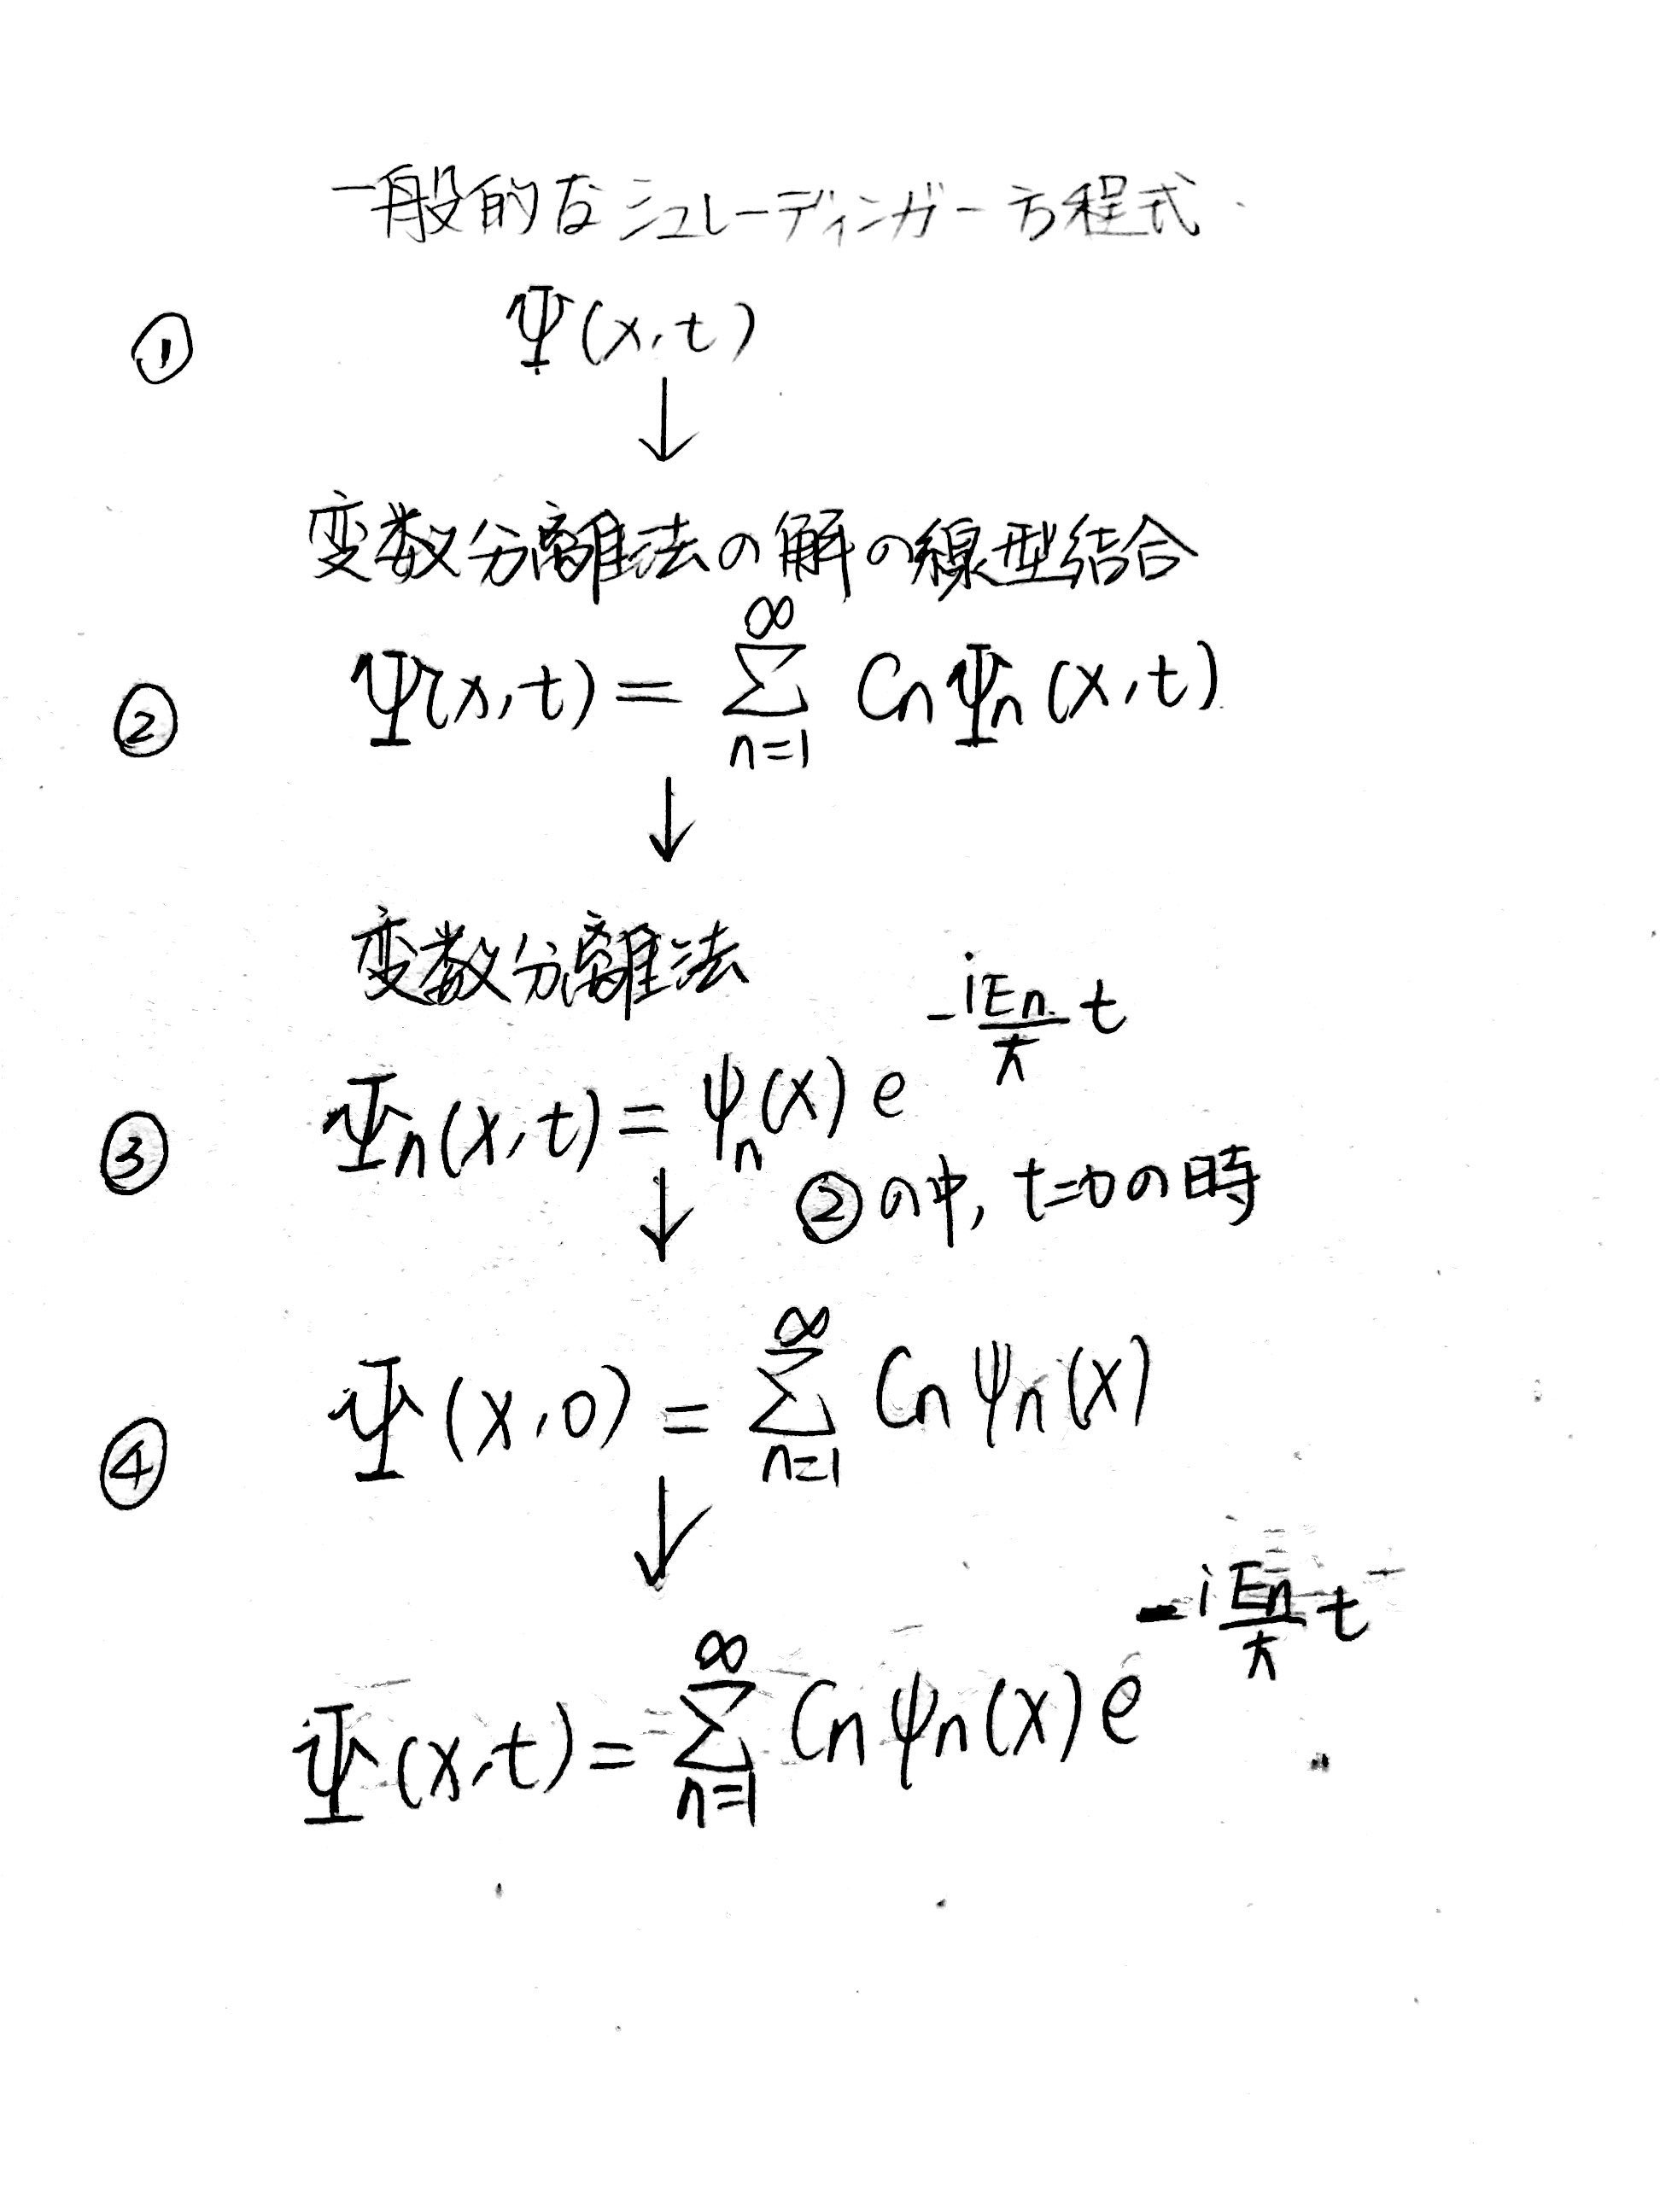 一般的なシュレーディンガー方程式
① Ψ(x,t)
↓
変数分離法の解の線型結合
② Ψ(x,t) = ∑_{n=1}^{∞} Cn Ψn(x,t)
↓
変数分離法
③ Ψn(x,t) = ψn(x) e^{-i\frac{En}{ħ}t}
↓ ②の中, t=0の時
④ Ψ(x,0) = ∑_{n=1}^{∞} Cn ψn(x)
↓
Ψ(x,t) = ∑_{n=1}^{∞} Cn ψn(x) e^{-i\frac{En}{ħ}t}